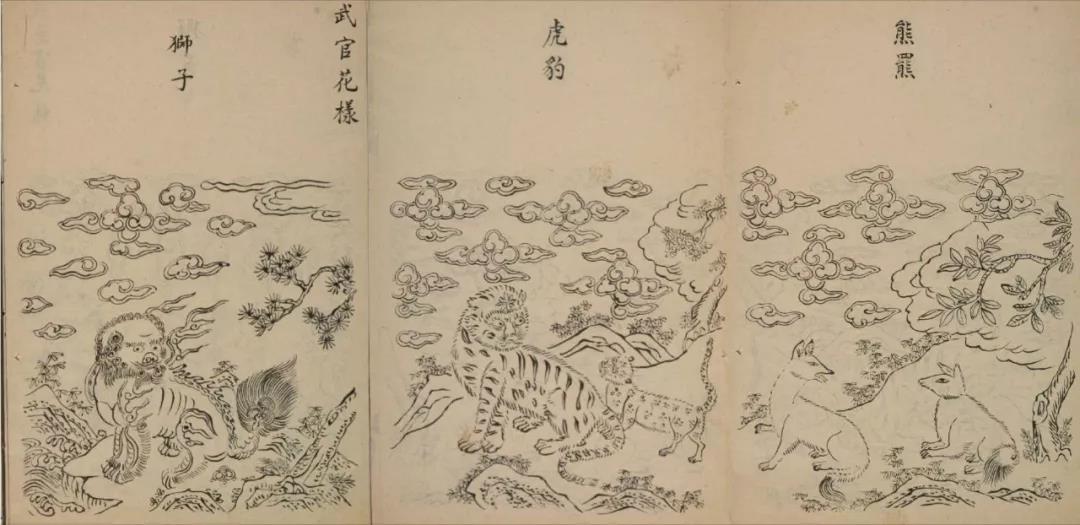 武官花樣
獅子
虎豹
熊羆